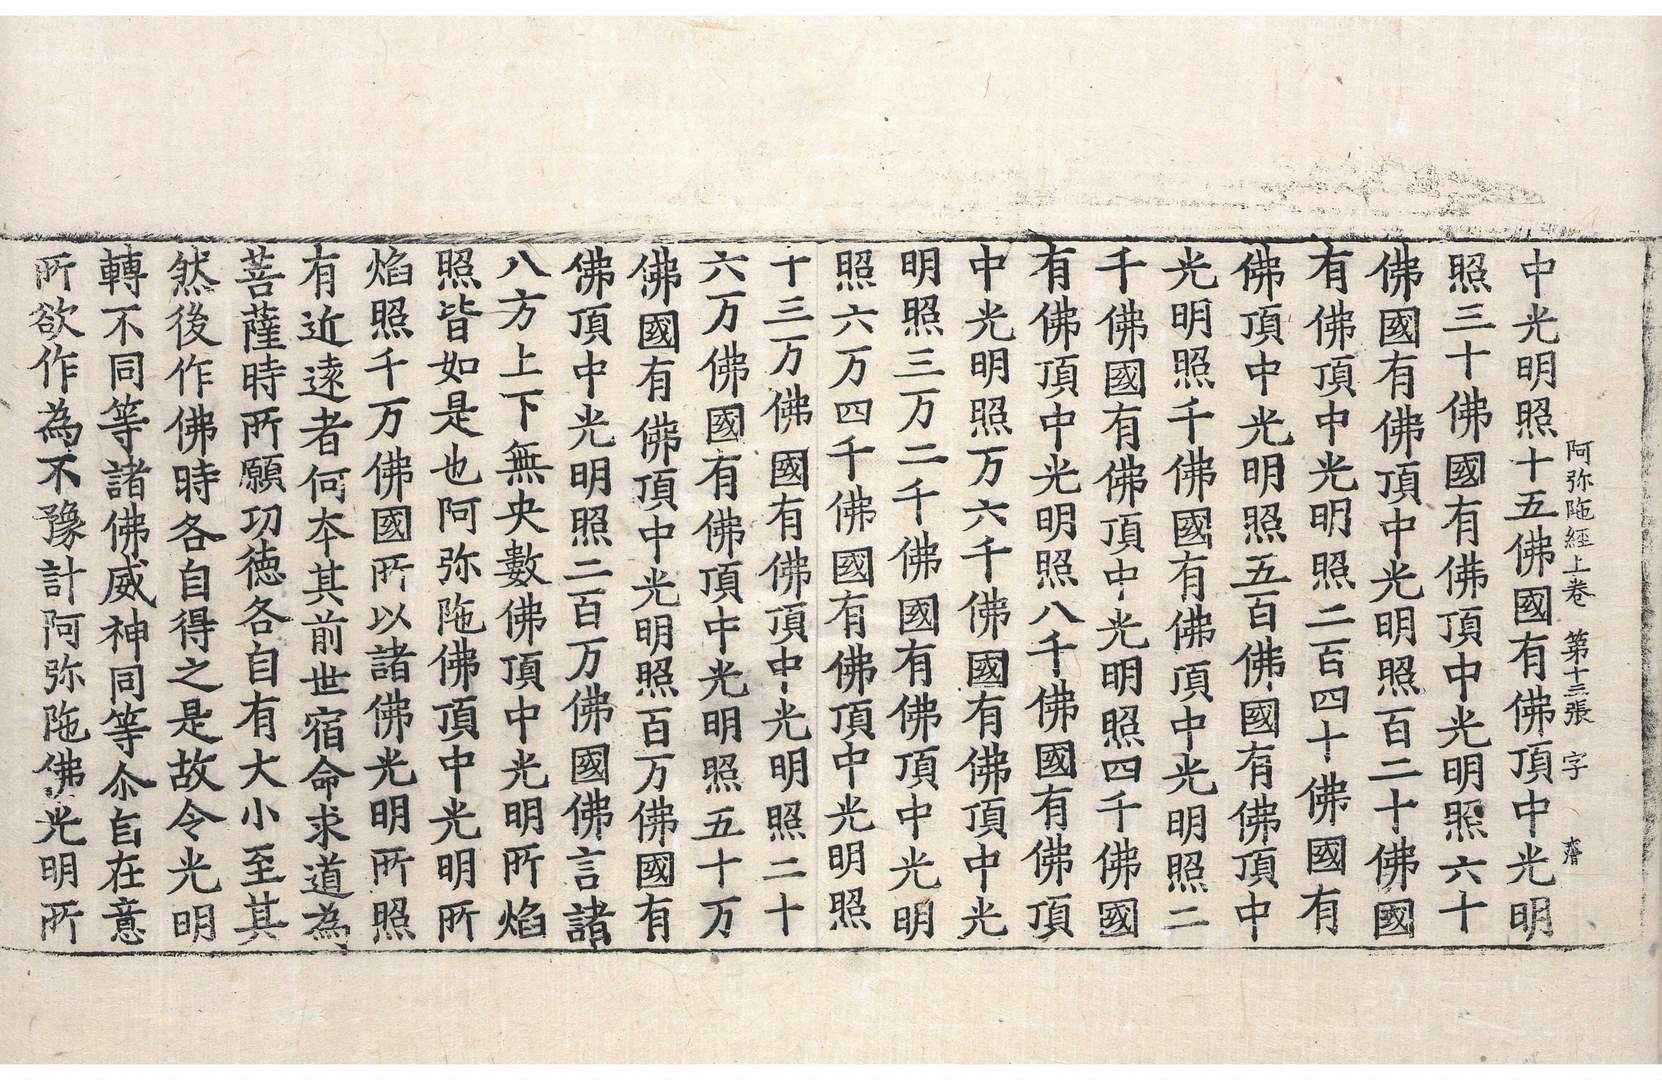 阿弥陁經上卷　第十三張　字　
中光明照十五佛國有佛頂中光明
照三十佛國有佛頂中光明照六十
佛國有佛頂中光明照百二十佛國
有佛頂中光明照二百四十佛國有
佛頂中光明照五百佛國有佛頂中
光明照千佛國有佛頂中光明照二
千佛國有佛頂中光明照四千佛國
有佛頂中光明照八千佛國有佛頂
中光明照万六千佛國有佛頂中光
明照三万二千佛國有佛頂中光明
照六万四千佛國有佛頂中光明照
十三万佛國有佛頂中光明照二十
六万佛國有佛頂中光明照五十万
佛國有佛頂中光明照百万佛國有
佛頂中光明照二百万佛國佛言諸
八方上下無央數佛頂中光明所焰
照皆如是也阿弥陁佛頂中光明所
焰照千万佛國所以諸佛光明所照
有近遠者何本其前世宿命求道為
菩薩時所願功德各自有大小至其
然後作佛時各自得之是故令光明
轉不同等諸佛威神同等尒自在意
所欲作為不豫計阿弥陁佛光明所